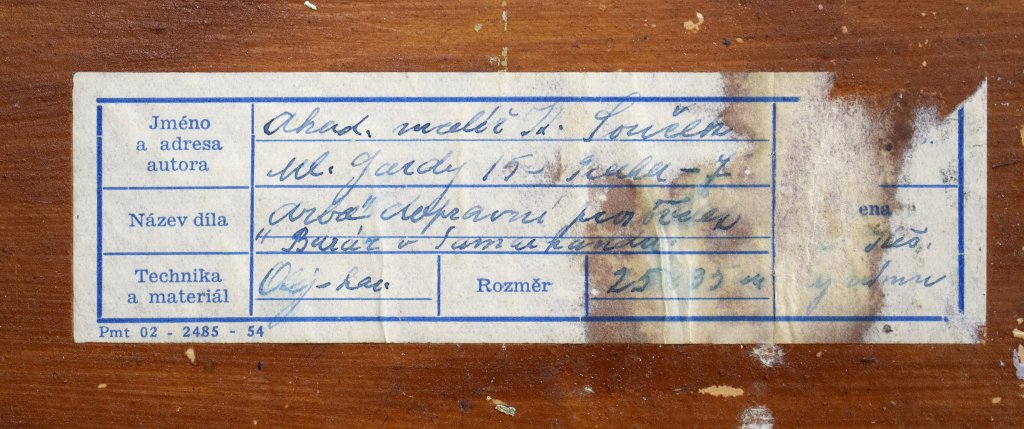 Jméno
a adresa
autora
Akad. malíř K. Souček
Ul. Gardy 15 Praha - 7
Název díla
"Arva" dopravní
ena
" Bazár v Samarkandu.
Kčs.
Technika
a materiál
Olej-
Rozměr
25 35
Pmt 02 - 2485 - 54